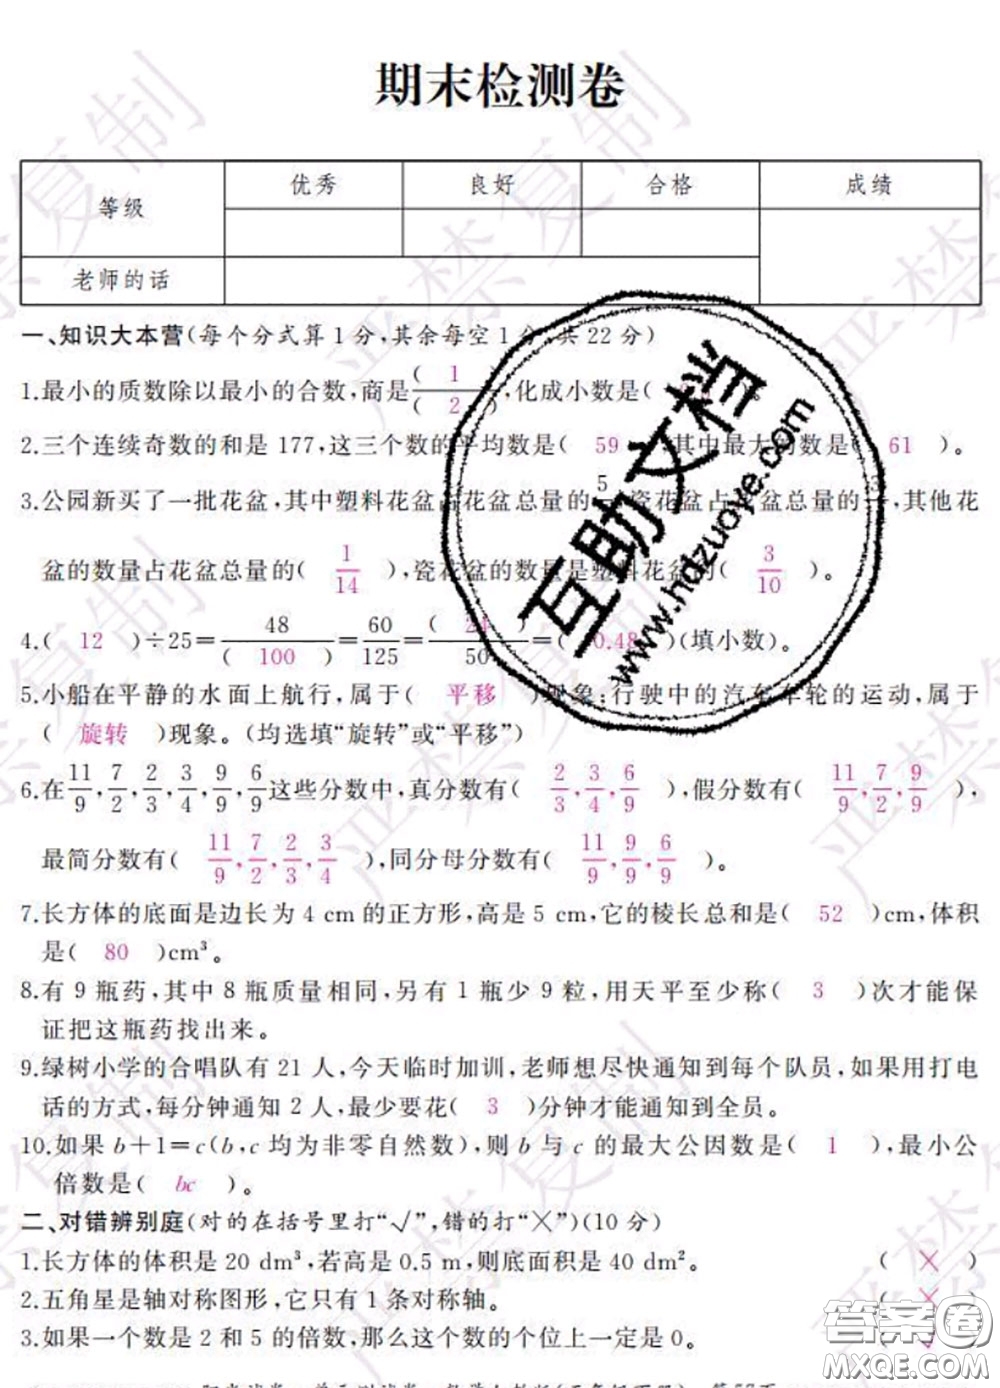 期末检测卷
等级 优秀 良好 合格 成绩
老师的话
一、知识大本营(每个分式算1分,其余每空1分,共22分)
1.最小的质数除以最小的合数,商是(1)/(2),化成小数是( 。
2.三个连续奇数的和是177,这三个数的平均数是( 59 ),其中最大的数是( 61 )。
3.公园新买了一批花盆,其中塑料花盆占花盆总量的5 瓷花盆占花盆总量的3 ,其他花
盆的数量占花盆总量的( 1/14 ),瓷花盆的数量是塑料花盆的( 3/10 )。
4.( 12 )÷25=48/( 100 )=60/125=( 24 )/50=( 0.48 )(填小数)。
5.小船在平静的水面上航行,属于( 平移 )现象;行驶中的汽车车轮的运动,属于
( 旋转 )现象。(均选填“旋转”或“平移”)
6.在11/9,7/2,2/3,3/4,9/9,6/9这些分数中,真分数有( 2/3,3/4,6/9 ),假分数有( 11/9,7/2,9/9 ),
最简分数有( 11/9,7/2,2/3,3/4 ),同分母分数有( 11/9,9/9,6/9 )。
7.长方体的底面是边长为4 cm的正方形,高是5 cm,它的棱长总和是( 52 )cm,体积
是( 80 )cm³。
8.有9瓶药,其中8瓶质量相同,另有1瓶少9粒,用天平至少称( 3 )次才能保
证把这瓶药找出来。
9.绿树小学的合唱队有21人,今天临时加训,老师想尽快通知到每个队员,如果用打电
话的方式,每分钟通知2人,最少要花( 3 )分钟才能通知到全员。
10.如果b+1=c(b,c均为非零自然数),则b与c的最大公因数是( 1 ),最小公
倍数是( bc )。
二、对错辨别庭(对的在括号里打“√”,错的打“×”)(10分)
1.长方体的体积是20 dm³,若高是0.5 m,则底面积是40 dm²。 ( × )
2.五角星是轴对称图形,它只有1条对称轴。 ( × )
3.如果一个数是2和5的倍数,那么这个数的个位上一定是0。
互助文档
www.hdzuoye.com
严禁复制
答案圈
MXQE.COM